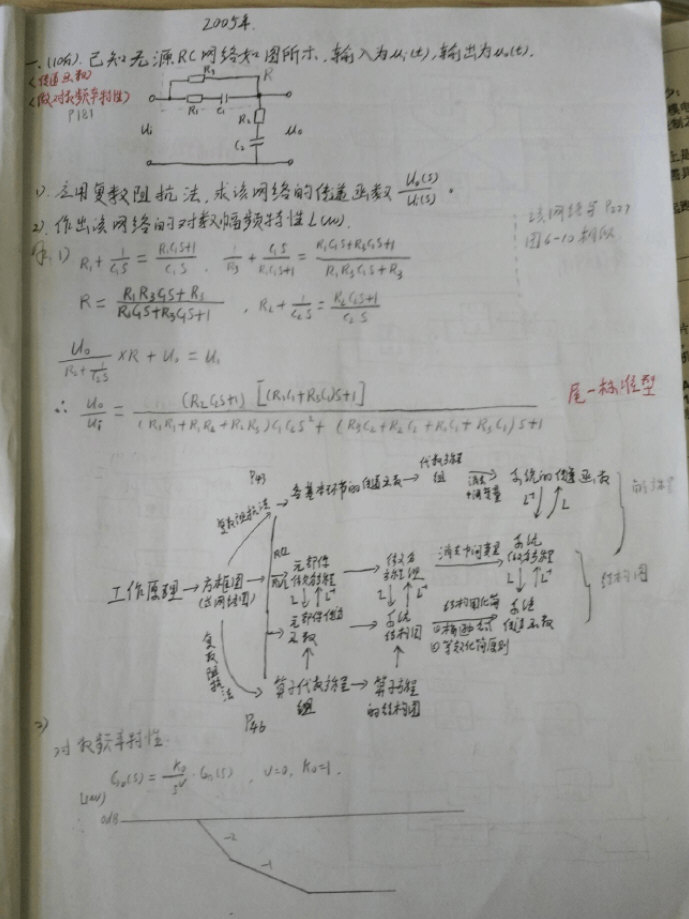 2005年.
一、(10分). 已知无源RC网络如图所示,输入为u_i(t),输出为u_o(t).
<传递函数>
<做对数频率特性>
P181
R3
R
R1
C1
R2
C2
Ui
Uo
1). 应用复数阻抗法,求该网络的传递函数 U_o(s)/U_i(s)。
2). 作出该网络的对数幅频特性L(ω).
该网络与P227
图6-10相似
解. 1) R1+1/(C1S)=(R1C1S+1)/(C1S) , 1/R3+C1S/(R1C1S+1)=(R1C1S+R3C1S+1)/(R1R3C1S+R3)
R=(R1R3C1S+R3)/(R1C1S+R3C1S+1) , R2+1/(C2S)=(R2C2S+1)/(C2S)
Uo/(R2+1/(C2S)) ×R+Uo=Ui
∴ Uo/Ui = (R2C2S+1)[(R1C1+R3C1)S+1]/((R3R1+R1R2+R2R3)C1C2S²+(R3C2+R2C2+R1C1+R3C1)S+1)
尾一标准型
P43
复数阻抗法
各基本环节的传递函数→代数方程组
消去中间变量
系统的传递函数
L⁻¹
L
工作原理→方框图
(或网络图)
元部件
微分方程
L
L⁻¹
微分方程组
消去中间变量
系统
微分方程
结构图
元部件传递
函数
系统
结构图
结构图化简
①梅逊公式
②等效化简原则
系统
传递函数
复数阻抗法
算子代数方程组→算子方程的结构图
P46
2)
对数频率特性.
G0(s)=K0/s^v·Gn(s), v=0, K0=1.
L(ω)
0dB
-2
-1